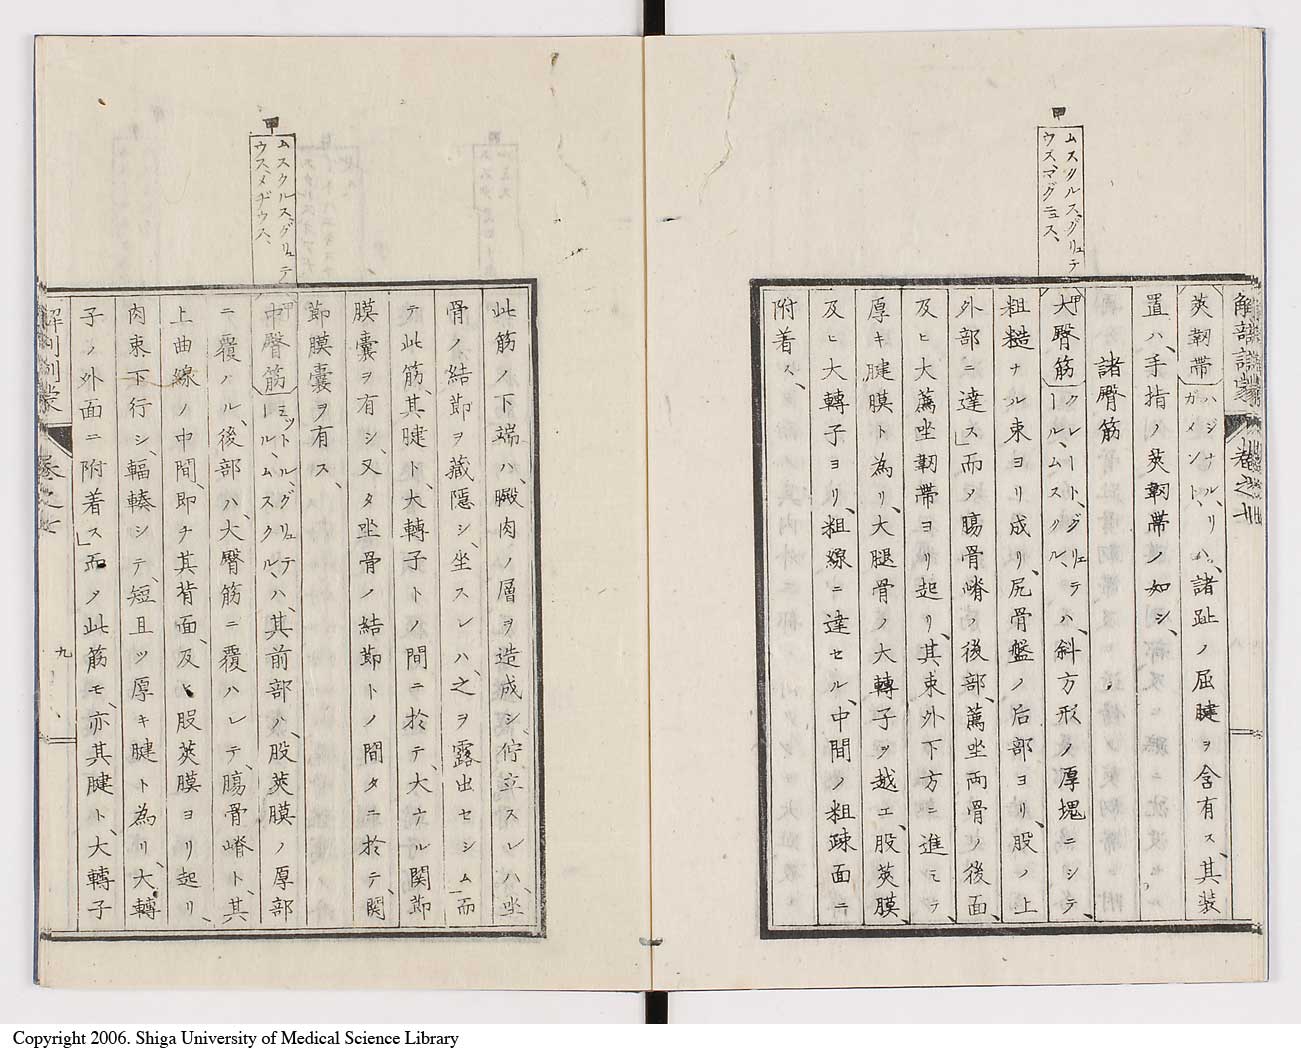 甲
ムスクルス、グリュテ
ウス、マグニュス、
解剖訓蒙 巻之七
莢靭帯 ハジナル、リ
ガメント、ハ、諸趾ノ屈腱ヲ含有ス、其装
置ハ、手指ノ莢靭帯ノ如シ、
諸臀筋
大臀筋 グレート、グリュテ
ール、ムスクル、ハ、斜方形ノ厚塊ニシテ、
粗糙ナル束ヨリ成リ、尻骨盤ノ后部ヨリ、股ノ上
外部ニ達ス」而ノ腸骨嵴ノ後部、薦坐両骨ノ後面、
及ヒ大薦坐靭帯ヨリ起リ、其束外下方ニ進ミテ、
厚キ腱膜ト為リ、大腿骨ノ大轉子ヲ越エ、股莢膜、
及ヒ大轉子ヨリ、粗線ニ達セル、中間ノ粗疎面ニ
附着ス、
甲
ムスクルス、グリュテ
ウス、メヂウス、
此筋ノ下端ハ、臓肉ノ層ヲ造成シ、佇立スレハ、坐
骨ノ結節ヲ藏隠シ、坐スレハ、之ヲ露出セシム」而
テ此筋、其腱ト、大轉子トノ間ニ於テ、大ナル関節
膜嚢ヲ有シ、又タ坐骨ノ結節トノ間タニ於テ、関
節膜嚢ヲ有ス、
中臀筋 ミットル、グリュテ
ール、ムスクル、ハ、其前部ハ、股莢膜ノ厚部
ニ覆ハル、後部ハ、大臀筋ニ覆ハレテ、腸骨嵴ト、其
上曲線ノ中間、即チ其背面、及ヒ股莢膜ヨリ起リ、
肉束下行シ、輻輳シテ、短且ツ厚キ腱ト為リ、大轉
子ノ外面ニ附着ス」而ノ此筋モ、亦其腱ト、大轉子
解剖訓蒙 巻之七
九
Copyright 2006. Shiga University of Medical Science Library